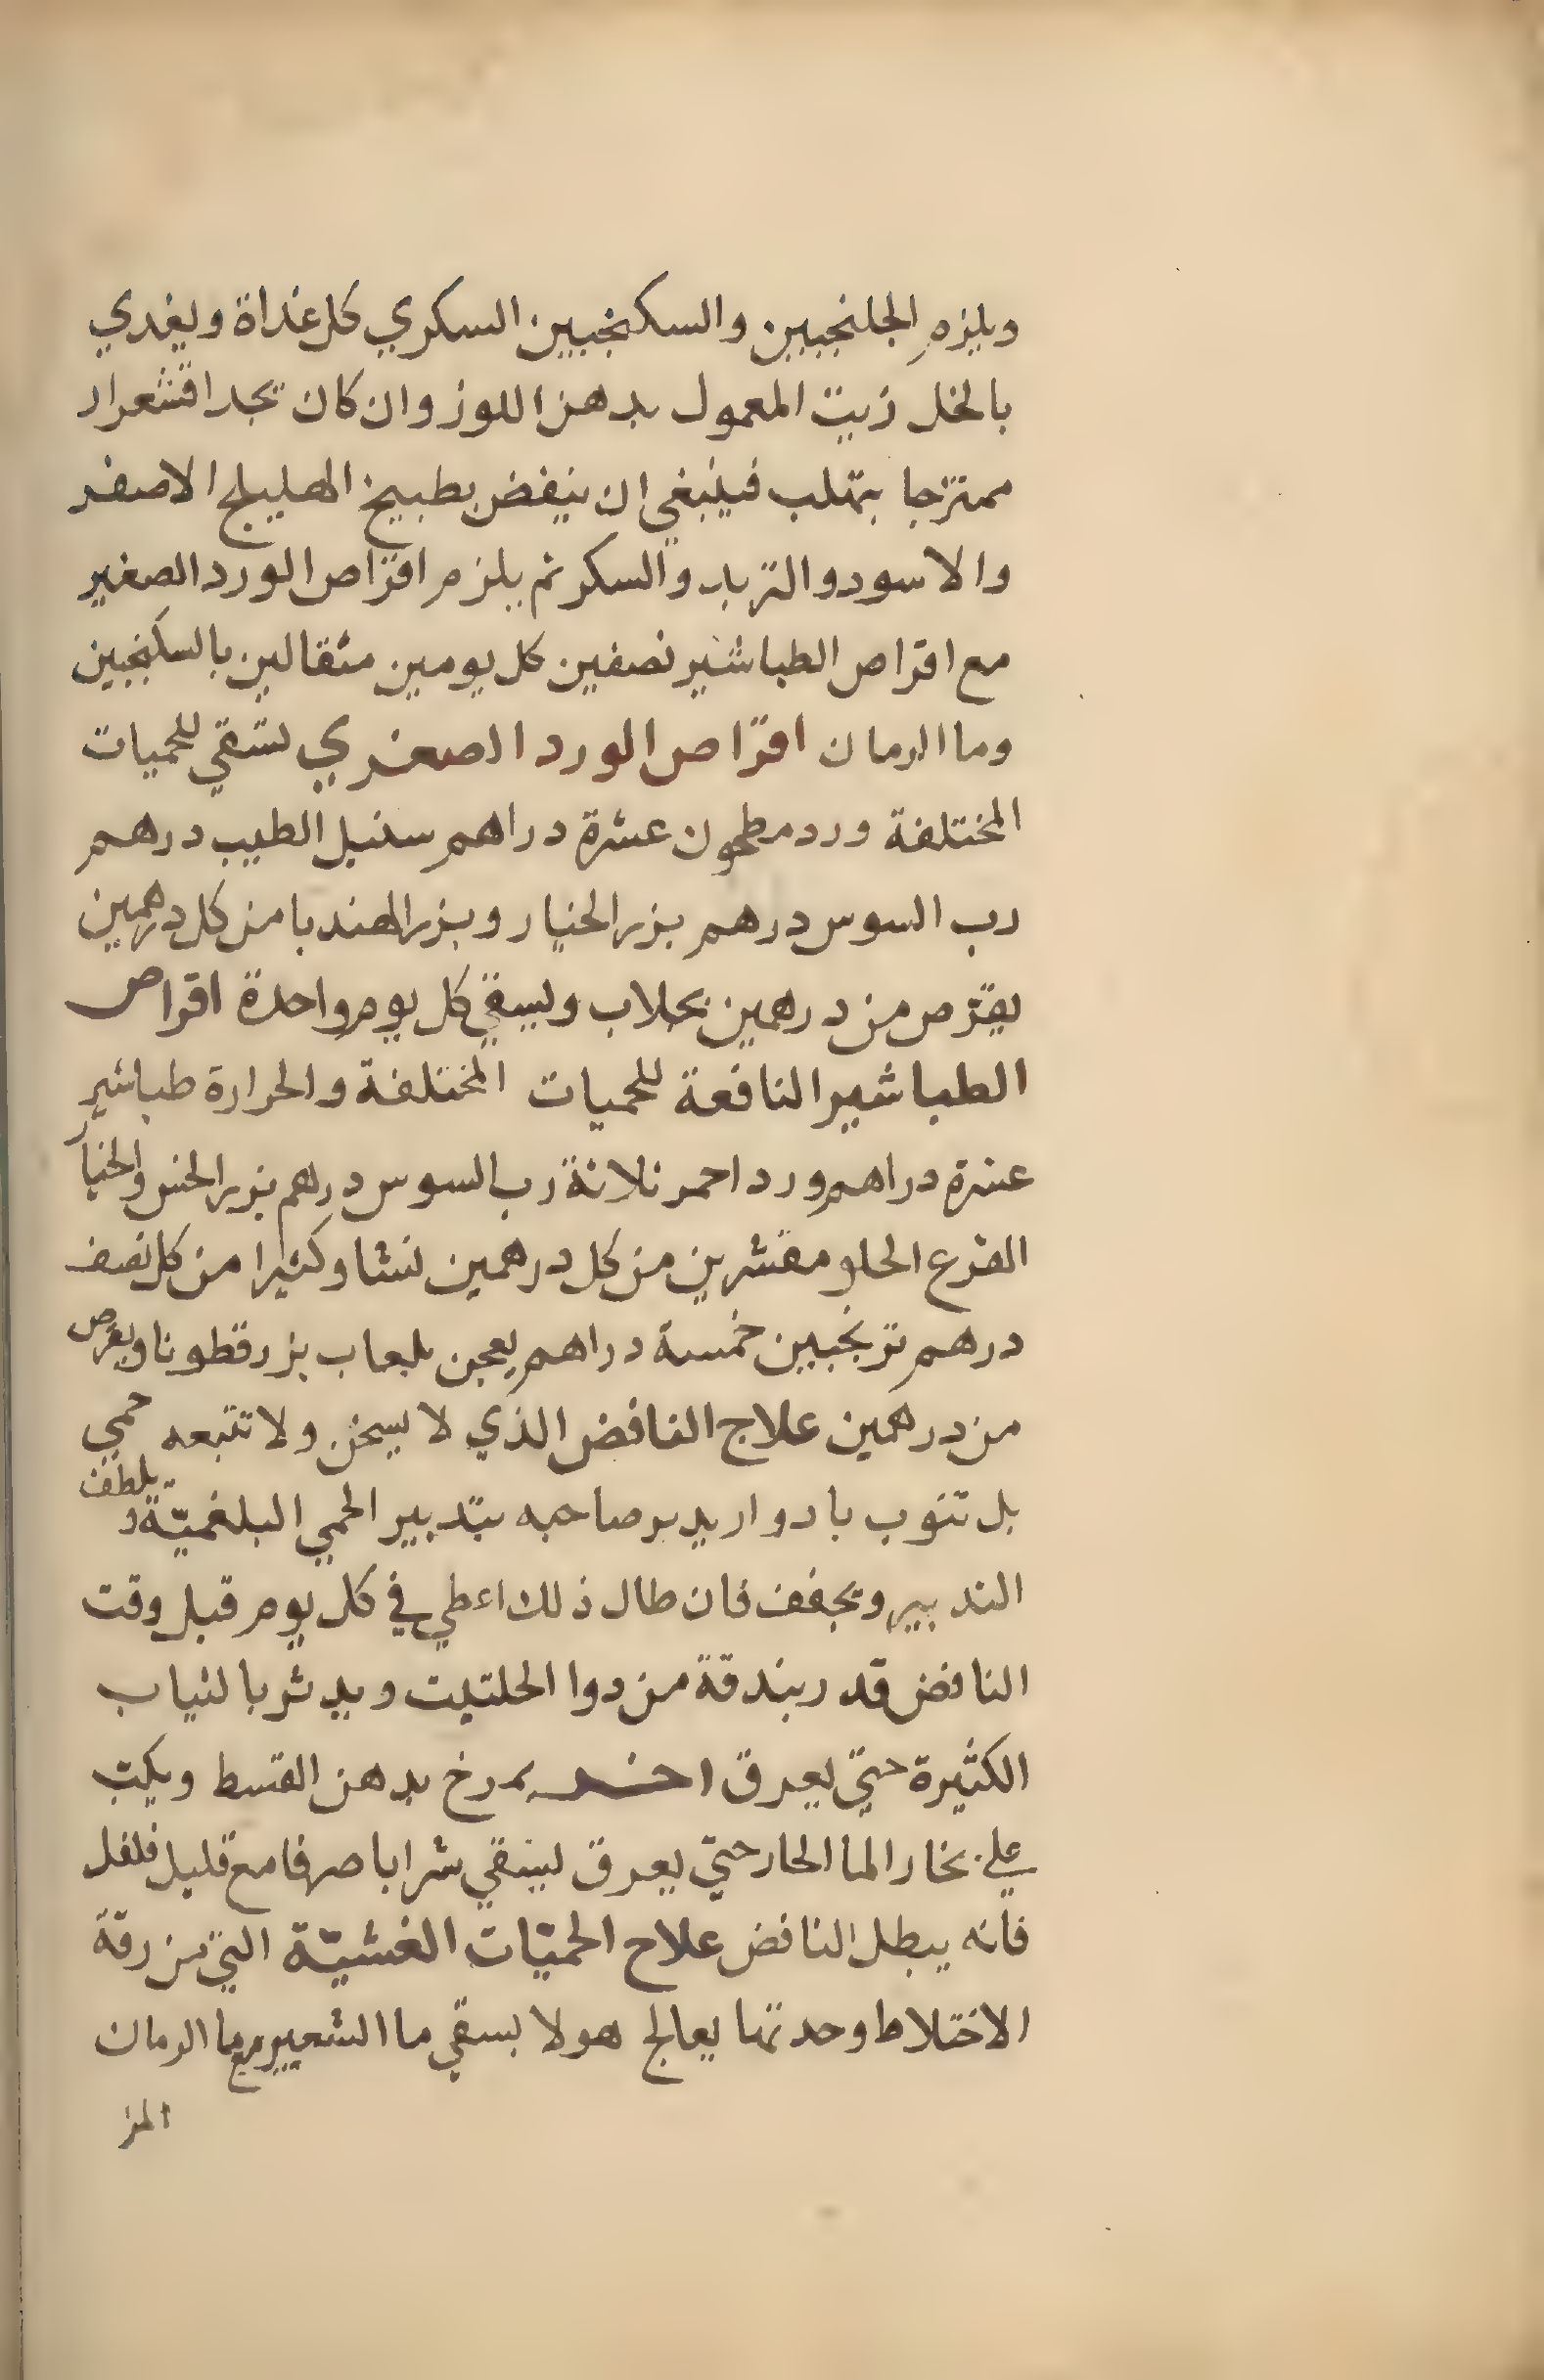 ويلزم الجلنجبين والسكنجبين السكري كل غداة ويغدي
بالخل زيت المعمول بدهن اللوز وان كان يجد اقشعرار
ممتزجا بتهلب فينبغي ان ينفض بطبيخ الهليلج الاصفر
والاسود والتربد والسكر ثم يلزم اقراص الورد الصغير
مع اقراص الطباشير نصفين كل يومين مثقالين بالسكنجبين
وما الرمان اقراص الورد الصغري تسقي للحميات
المختلفة ورد مطحون عشرة دراهم سنبل الطيب درهم
رب السوس درهم بزر الخيار وبزر الهندبا من كل درهمين
يقرص من درهمين بجلاب ويسقي كل يوم واحدة اقراص
الطباشير النافعة للحميات المختلفة والحرارة طباشير
عشرة دراهم ورد احمر ثلاثة رب السوس درهم بزر الخس والخيار
القرع الحلو مقشرين من كل درهمين نشا وكثيرا من كل نصف
درهم ترنجبين خمسة دراهم يعجن بلعاب بزر قطونا ويقرص
من درهمين علاج النافض الذي لا يسخن ولا تتبعه حمي
بل تنوب بادوار يدبر صاحبه بتدبير الحمي البلغميّة ويلطف
التدبير ويجفف فان طال ذلك اعطي في كل يوم قبل وقت
النافض قدر بندقة من دوا الحلتيت ويدثر بالثياب
الكثيرة حتي يعرق اخر يمرخ بدهن القسط ويكب
علي بخار الما الحار حتي يعرق ليسقي شرابا صرفا مع قليل فلفل
فانه يبطل النافض علاج الحميّات الغشيّة التي من رقة
الاختلاط وحدتها يعالج هولا بسقي ما الشعير مع ما الرمان
المز